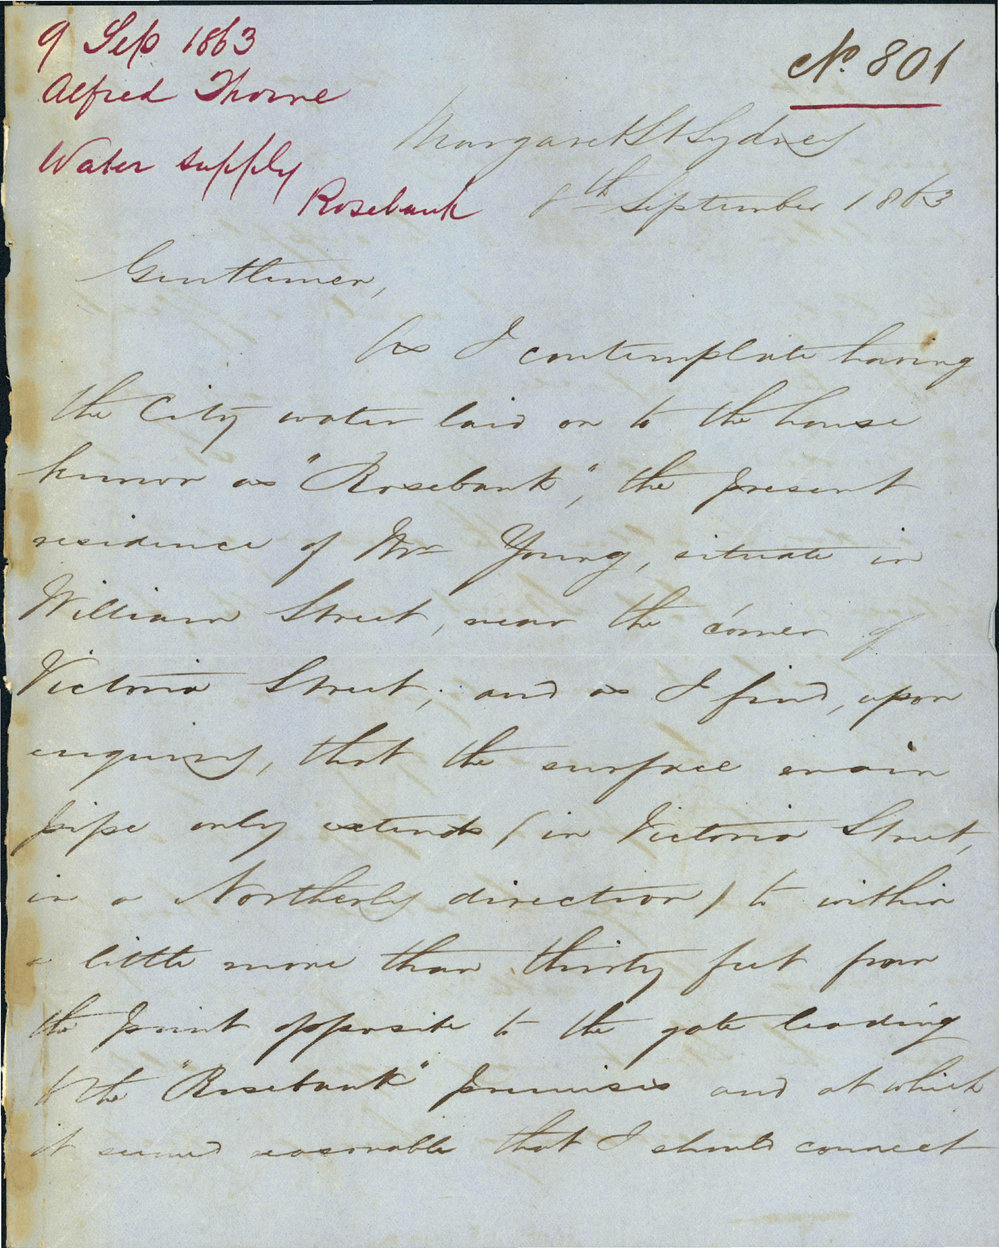 9 Sep 1863
Alfred Thorne
Water supply
Rosebank
No. 801
Margaret St Sydney
8th September 1863
Gentlemen,
As I contemplate having
the City water laid on to the house
known as "Rosebank", the present
residence of Mr Young, situate in
William Street, near the corner of
Victoria Street; and as I find, upon
enquiry, that the surface main
pipe only extends (in Victoria Street,
in a Northerly direction) to within
a little more than thirty feet from
the point opposite to the gate leading
to the "Rosebank" premises and at which
it seemed reasonable that I should connect